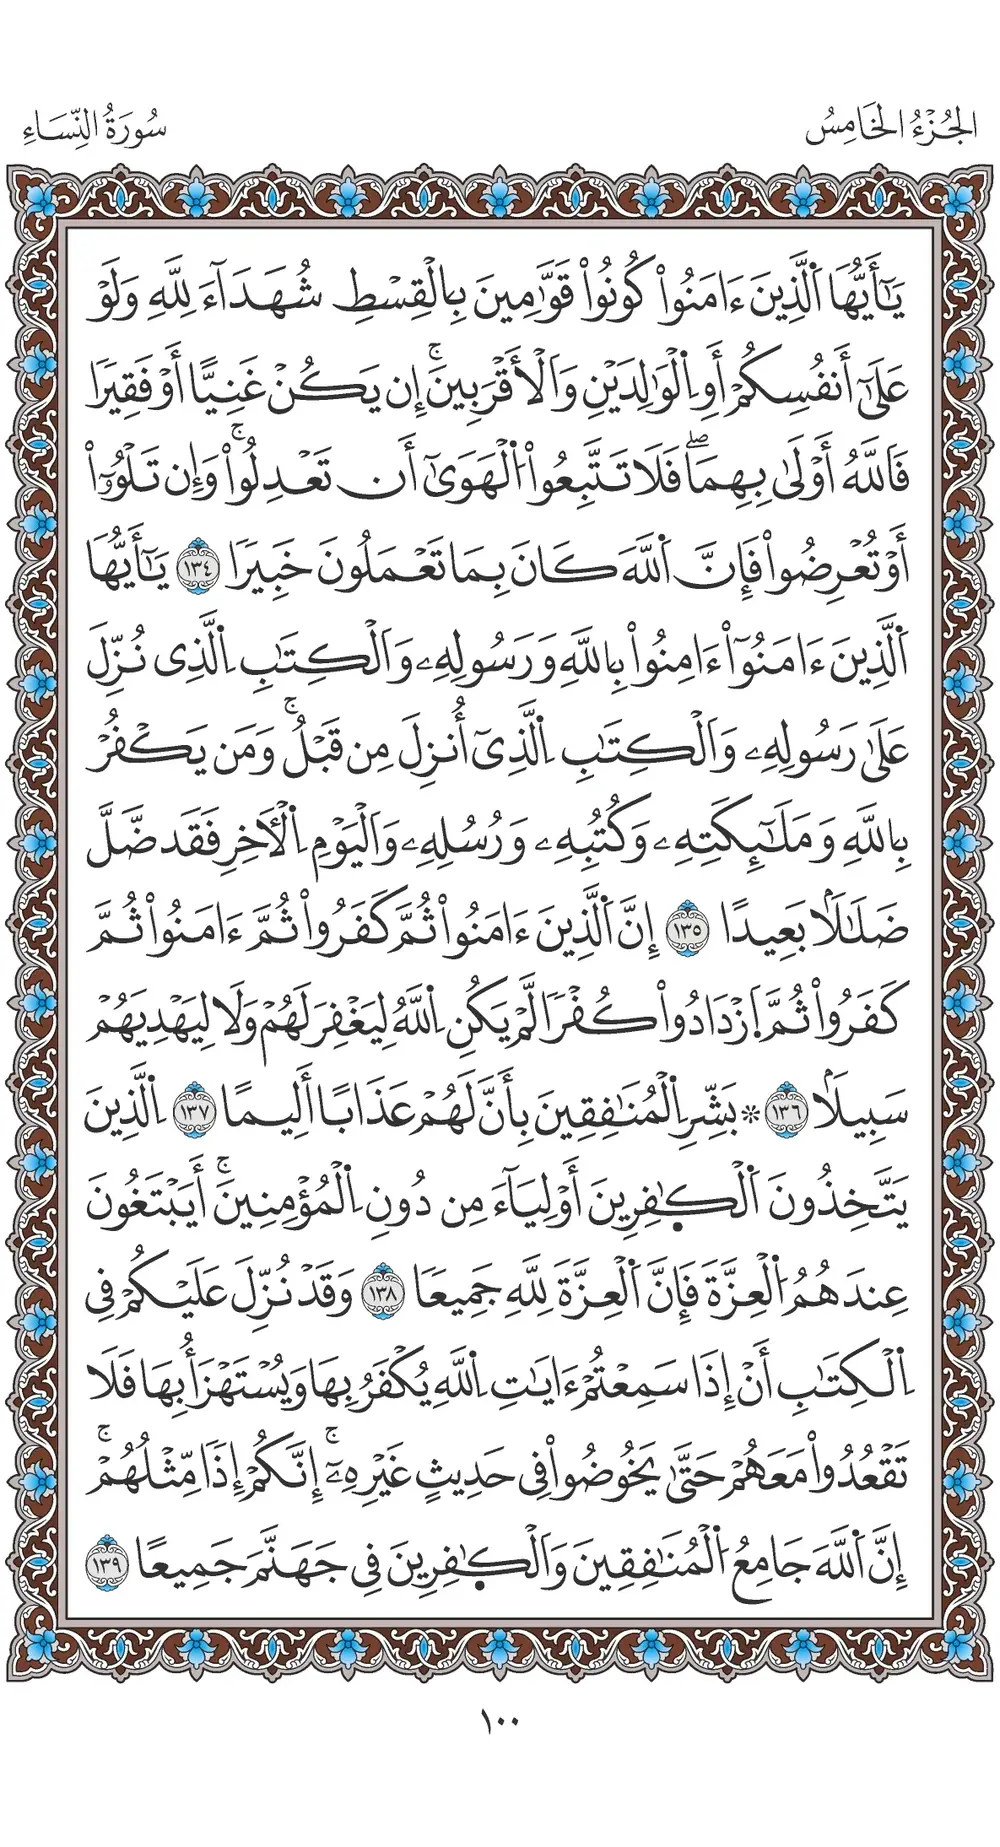 الجُزْءُ الخَامِسُ
سُورَةُ النِّسَاءِ
يَٰٓأَيُّهَا اَ۬لَّذِينَ ءَامَنُواْ كُونُواْ قَوَّٰمِينَ بِالْقِسْطِ شُهَدَآءَ لِلَّهِ وَلَوْ
عَلَىٰٓ أَنفُسِكُمْ أَوِ اِ۬لْوَٰلِدَيْنِ وَالْأَقْرَبِينَۚ إِن يَكُنْ غَنِيًّا أَوْ فَقِيرًا
فَاللَّهُ أَوْلَىٰ بِهِمَاۖ فَلَا تَتَّبِعُواْ اُ۬لْهَوَىٰٓ أَن تَعْدِلُواْۚ وَإِن تَلْوُۥٓاْ
أَوْ تُعْرِضُواْ فَإِنَّ اَ۬للَّهَ كَانَ بِمَا تَعْمَلُونَ خَبِيرًا ١٣٤ يَٰٓأَيُّهَا
اَ۬لَّذِينَ ءَامَنُوٓاْ ءَامِنُواْ بِاللَّهِ وَرَسُولِهِۦ وَالْكِتَٰبِ اِ۬لَّذِى نُزِّلَ
عَلَىٰ رَسُولِهِۦ وَالْكِتَٰبِ اِ۬لَّذِىٓ أُنزِلَ مِن قَبْلُۚ وَمَن يَكْفُرْ
بِاللَّهِ وَمَلَٰٓئِكَتِهِۦ وَكُتُبِهِۦ وَرُسُلِهِۦ وَالْيَوْمِ اِ۬لْأٓخِرِ فَقَد ضَّلَّ
ضَلَٰلًا بَعِيدًا ١٣٥ إِنَّ اَ۬لَّذِينَ ءَامَنُواْ ثُمَّ كَفَرُواْ ثُمَّ ءَامَنُواْ ثُمَّ
كَفَرُواْ ثُمَّ اَ۪زْدَادُواْ كُفْرًا لَّمْ يَكُنِ اِ۬للَّهُ لِيَغْفِرَ لَهُمْ وَلَا لِيَهْدِيَهُمْ
سَبِيلًا ١٣٦ ۞ بَشِّرِ اِ۬لْمُنَٰفِقِينَ بِأَنَّ لَهُمْ عَذَابًا أَلِيمًا ١٣٧ اِ۬لَّذِينَ
يَتَّخِذُونَ اَ۬لْكٰ۪فِرِينَ أَوْلِيَآءَ مِن دُونِ اِ۬لْمُؤْمِنِينَۚ أَيَبْتَغُونَ
عِندَهُمُ اُ۬لْعِزَّةَ فَإِنَّ اَ۬لْعِزَّةَ لِلَّهِ جَمِيعًا ١٣٨ وَقَدْ نُزِّلَ عَلَيْكُمْ فِى
اِ۬لْكِتَٰبِ أَنْ إِذَا سَمِعْتُمْ ءَايَٰتِ اِ۬للَّهِ يُكْفَرُ بِهَا وَيُسْتَهْزَأُ بِهَا فَلَا
تَقْعُدُواْ مَعَهُمْ حَتَّىٰ يَخُوضُواْ فِى حَدِيثٍ غَيْرِهِۦٓۚ إِنَّكُمْ إِذًا مِّثْلُهُمْۚ
إِنَّ اَ۬للَّهَ جَامِعُ اُ۬لْمُنَٰفِقِينَ وَالْكٰ۪فِرِينَ فِى جَهَنَّمَ جَمِيعًا ١٣٩
١٠٠